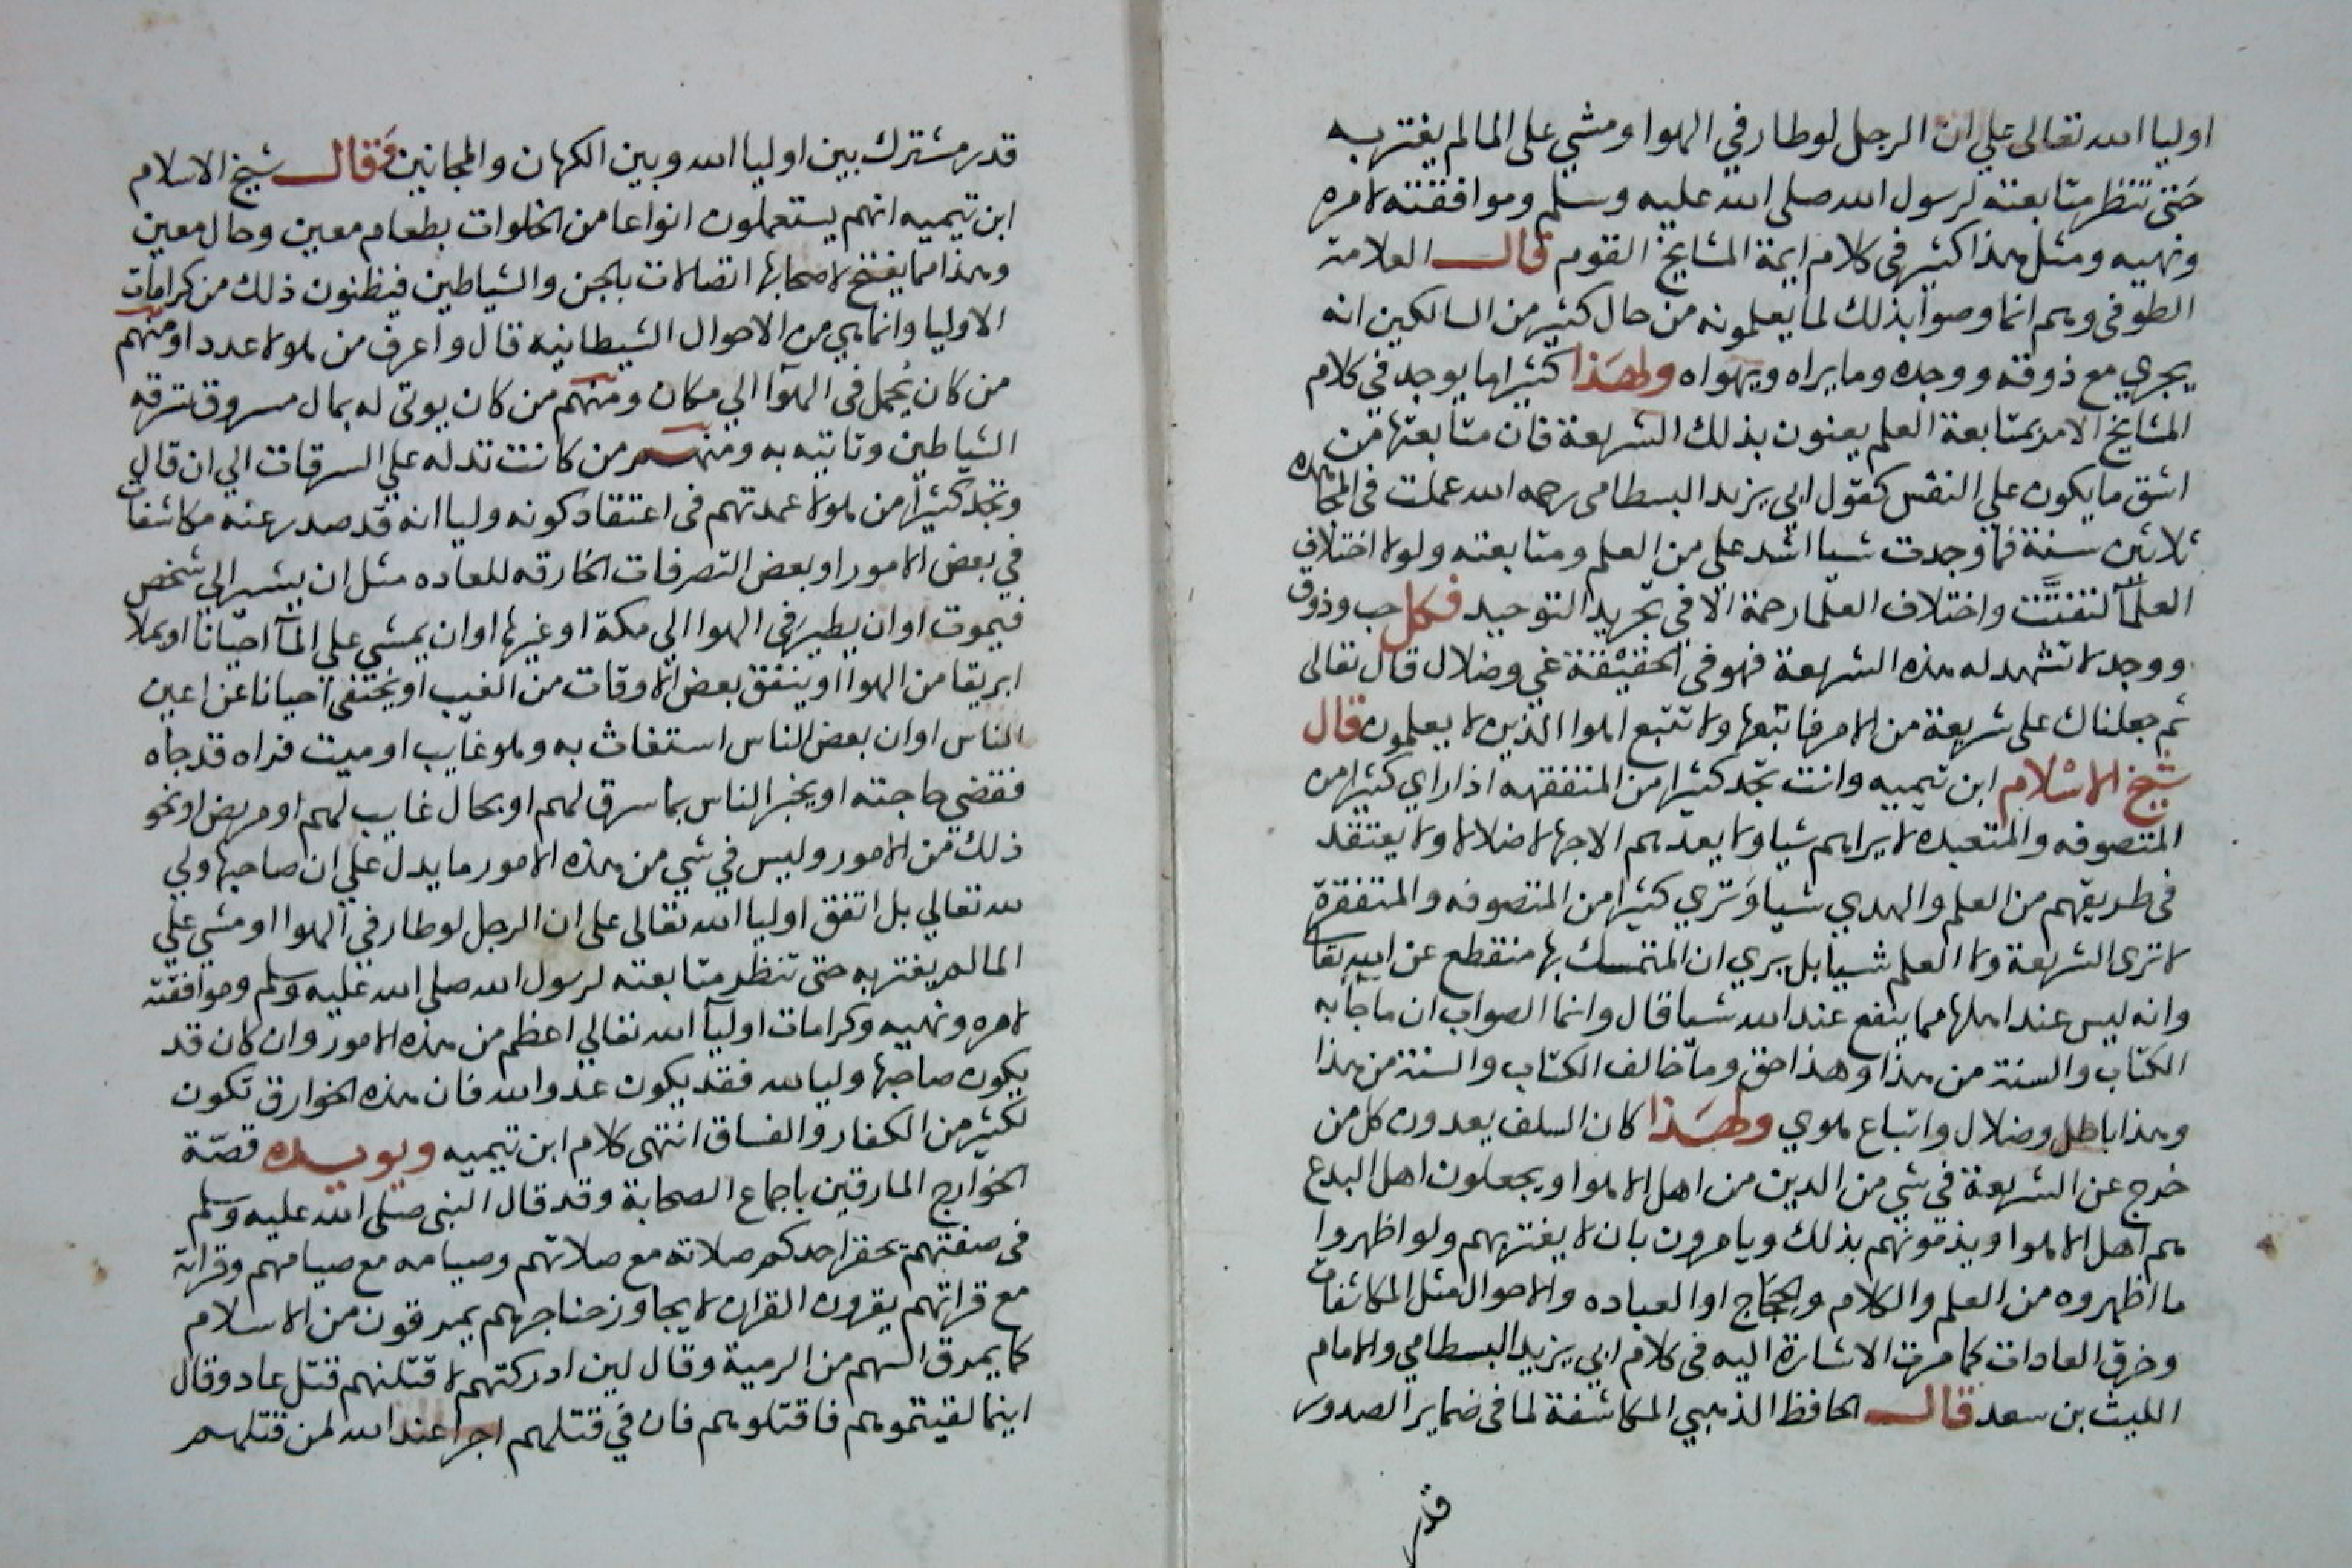 اوليا الله تعالى على ان الرجل لوطار في الهوا ومشي على الما لم يغتر به
حتى تنظر متابعته لرسول الله صلى الله عليه وسلم وموافقته لامره
ونهيه ومثل هذا كثير في كلام ايمة المشايخ القوم قال العلامة
الطوفى وهم انما وصوا بذلك لما يعلمونه من حال كثير من السالكين انه
يجري مع ذوقه ووجده وما يراه ويهواه ولهذا كثيرا ما يوجد في كلام
المشايخ الامر بمتابعة العلم يعنون بذلك الشريعة فان متابعتها من
اشق ما يكون على النفس كقول ابي يزيد البسطامى رحمه الله عملت في المجاهده
ثلاثين سنة فما وجدت شيا اشد علي من العلم ومتابعته ولولا اختلاف
العلمآ لتفتت واختلاف العلما رحمة الا في تجريد التوحيد فكل حب وذوق
ووجد لا تشهد له هذه الشريعة فهو في الحقيقة غي وضلال قال تعالى
ثم جعلناك على شريعة من الامر فاتبعها ولا تتبع اهوا الذين لا يعلمون قال
شيخ الاسلام ابن تيميه وانت تجد كثيرا من المتفقهه اذا راي كثيرا من
المتصوفه والمتعبده لا يراهم شيا ولا يعدهم الا جهالا ضلالا ولا يعتقد
في طريقهم من العلم والهدي شيا وتري كثيرا من المتصوفه والمتفقرة
لا ترى الشريعة ولا العلم شيا بل يري ان المتمسك بها منقطع عن الله تعا
وانه ليس عند اهلها مما ينفع عند الله شيا قال وانما الصواب ان ما جآ به
الكتاب والسنة من هذا وهذا حق وما خالف الكتاب والسنة من هذا
وهذا باطل وضلال واتباع هوي ولهذا كان السلف يعدون كل من
خرج عن الشريعة في شي من الدين من اهل الاهوا ويجعلون اهل البدع
هم اهل الاهوا ويذمونهم بذلك ويامرون بان لا يغتر بهم ولو اظهروا
ما اظهروه من العلم والكلام والحجاج او العباده والاحوال مثل المكاشفات
وخرق العادات كما مرت الاشارة اليه في كلام ابي يزيد البسطامي والامام
الليث بن سعد قال الحافظ الذهبي المكاشفة لما في ضماير الصدور
قدر
قدر مشترك بين اوليا الله وبين الكهان والمجانين فقال شيخ الاسلام
ابن تيميه انهم يستعملون انواعا من الخلوات بطعام معين وحال معين
وهذا مما يفتح لاصحابها اتصالات بالجن والشياطين فيظنون ذلك من كرامات
الاوليا وانما هي من الاحوال الشيطانيه قال واعرف من هولا عددا ومنهم
من كان يحمل في الهوآا الي مكان ومنهم من كان يوتى له بمال مسروق تسرقه
الشياطين وتاتيه به ومنهم من كانت تدله علي السرقات الي ان قال
وتجد كثيرا من هولا عمدتهم في اعتقاد كونه وليا انه قد صدر عنه مكاشفات
في بعض الامور او بعض التصرفات الخارقه للعاده مثل ان يشير الي شخص
فيموت او ان يطير في الهوا الي مكة او غيرها او ان يمشي علي المآ احيانا او يملا
ابريقا من الهوا او ينفق بعض الاوقات من الغيب او يختفي احيانا عن اعين
الناس او ان بعض الناس استغاث به وهو غايب او ميت فراه قد جاه
فقضي حاجته او يخبر الناس بما سرق لهم او بحال غايب لهم او مريض او نحو
ذلك من الامور وليس في شي من هذه الامور ما يدل علي ان صاحبها ولي
لله تعالي بل اتفق اوليا الله تعالى على ان الرجل لوطار في الهوا او مشي علي
الما لم يغتر به حتى تنظر متابعته لرسول الله صلى الله عليه وسلم وموافقته
لامره ونهيه وكرامات اوليآ الله تعالي اعظم من هذه الامور وان كان قد
يكون صاحبها وليا لله فقد يكون عدوا لله فان هذه الخوارق تكون
لكثير من الكفار والفساق انتهى كلام ابن تيميه ويويده قصة
الخوارج المارقين باجماع الصحابة وقد قال النبى صلى الله عليه وسلم
في صفتهم يحقر احدكم صلاته مع صلاتهم وصيامه مع صيامهم وقراته
مع قراتهم يقرون القران لا يجاوز حناجرهم يمرقون من الاسلام
كما يمرق السهم من الرمية وقال لين ادركتهم لاقتلنهم قتل عاد وقال
اينما لقيتموهم فاقتلوهم فان في قتلهم اجرا عند الله لمن قتلهم